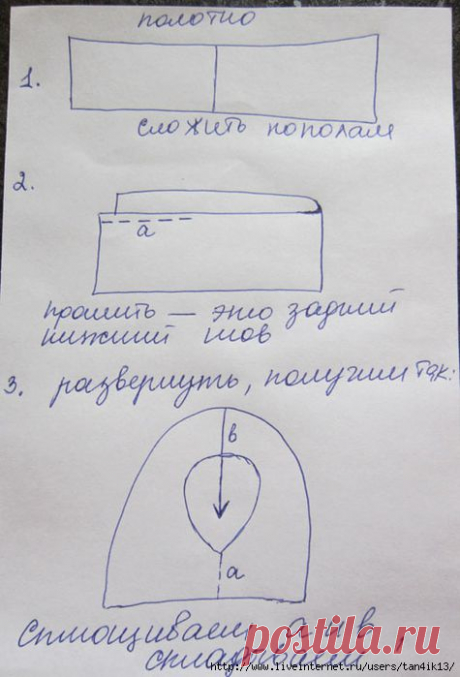 полотно
1.
сложить пополам
2.
а
прошить — это задний
нижний шов
3. развернуть, получим так:
в
а
сплющиваем а и в,
складываем
postila.ru
http://www.liveinternet.ru/users/tan4ik13/